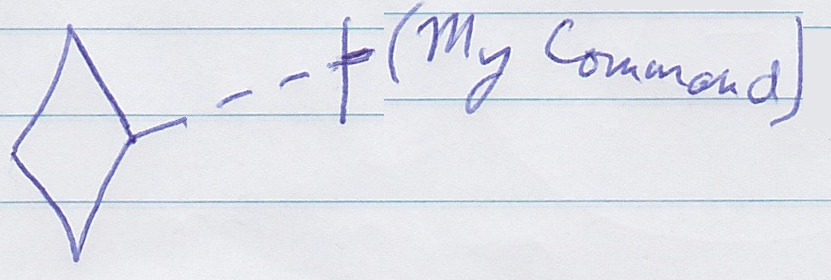 (My Command)